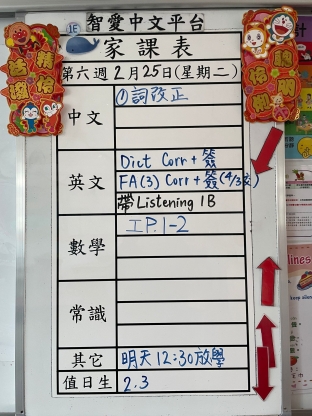 1E 智愛中文平台
家課表
第六週2月25日(星期二)
中文
①詞改正
英文
Dict Corr + 簽
FA(3) Corr + 簽 (4/3交)
帶 Listening 1B
數學
工P.1-2
常識
其它
明天12:30放學
值日生
2.3
精靈
活潑
聰明
伶俐